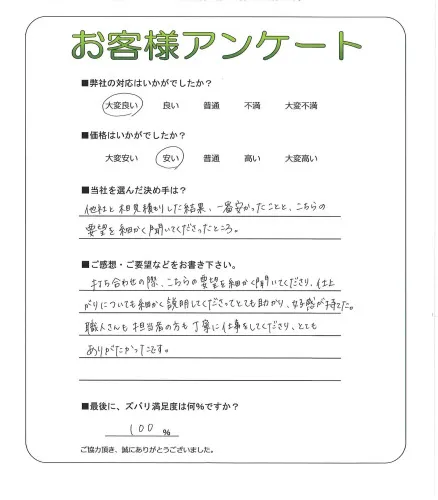 お客様アンケート
■弊社の対応はいかがでしたか？
大変良い 良い 普通 不満 大変不満
■価格はいかがでしたか？
大変安い 安い 普通 高い 大変高い
■当社を選んだ決め手は？
他社と相見積もりした結果、一番安かったことと、こちらの
要望を細かく聞いてくださったところ。
■ご感想・ご要望などをお書き下さい。
打ち合わせの際、こちらの要望を細かく聞いてくださり、仕上
がりについても細かく説明してくださってとても助かり、好感が持てた。
職人さんも担当者の方も丁寧に仕事をしてくださり、とても
ありがたかったです。
■最後に、ズバリ満足度は何%ですか？
100 %
ご協力頂き、誠にありがとうございました。